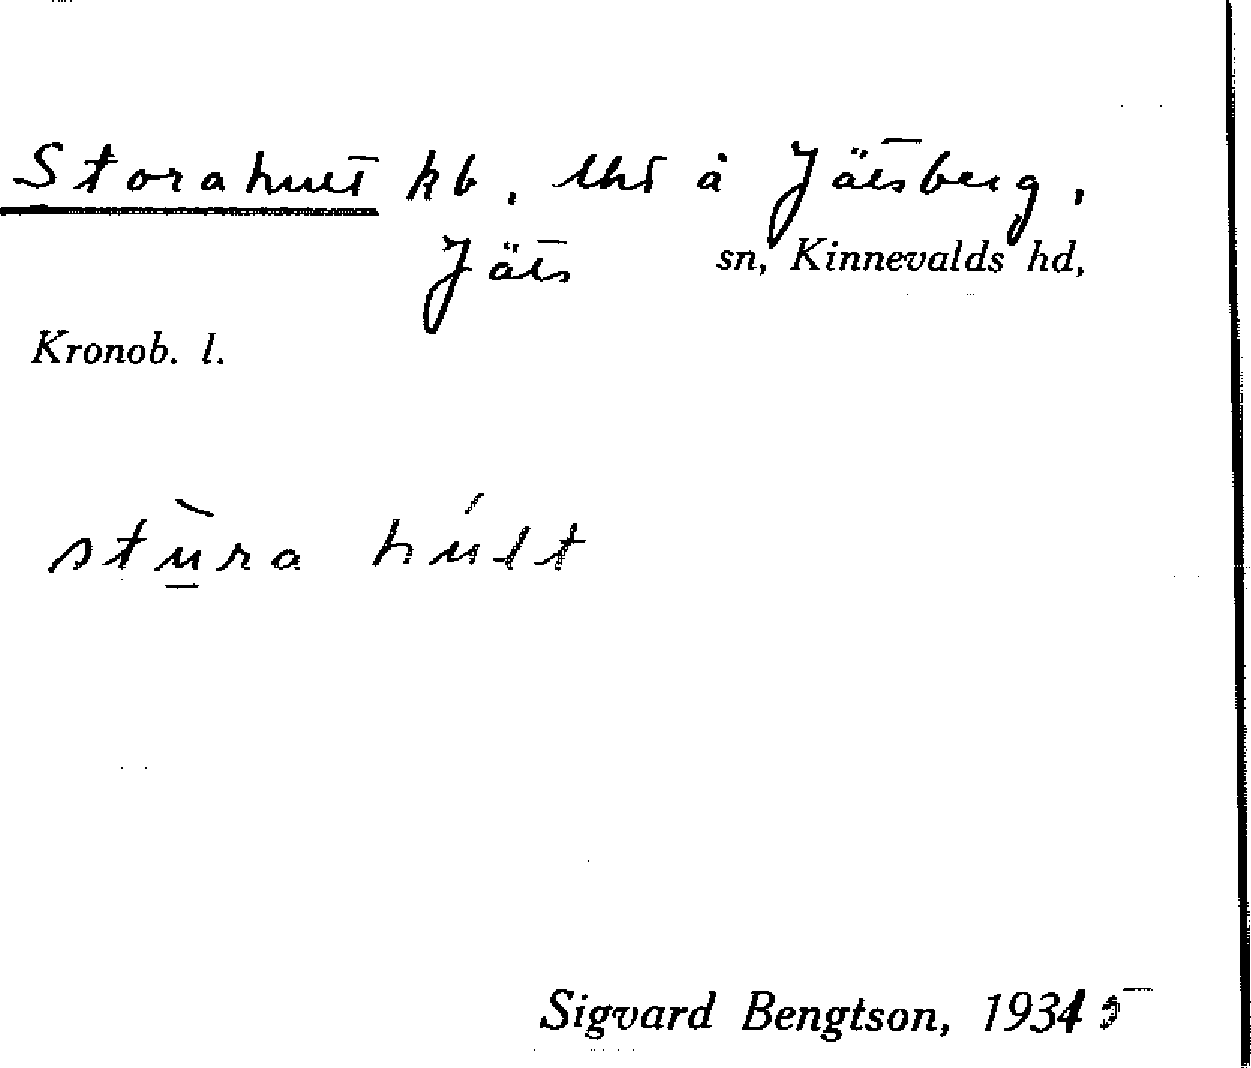 Storahult kb, lht å Jätsberg,
Jäts sn, Kinnevalds hd,
Kronob. l.
stù̲ra húlt
Sigvard Bengtson, 1935